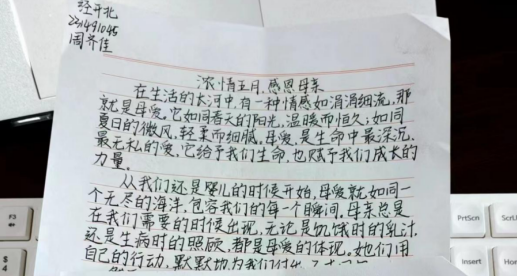 经开北
231491045
周齐佳
浓情五月,感恩母亲
在生活的长河中,有一种情感如涓涓细流,那
就是母爱。它如同春天的阳光,温暖而恒久;如同
夏日的微风,轻柔而细腻。母爱,是生命中最深沉、
最无私的爱,它给予我们生命,也赋予我们成长的
力量。
从我们还是婴儿的时候开始,母爱就如同一
个无尽的海洋,包容我们的每一个瞬间。母亲总是
在我们需要的时候出现,无论是饥饿时的乳汁,
还是生病时的照顾,都是母爱的体现。她们用
自己的行动,默默地为我们付出
F3
F4
PrtScn
Scr
Insert
Hom